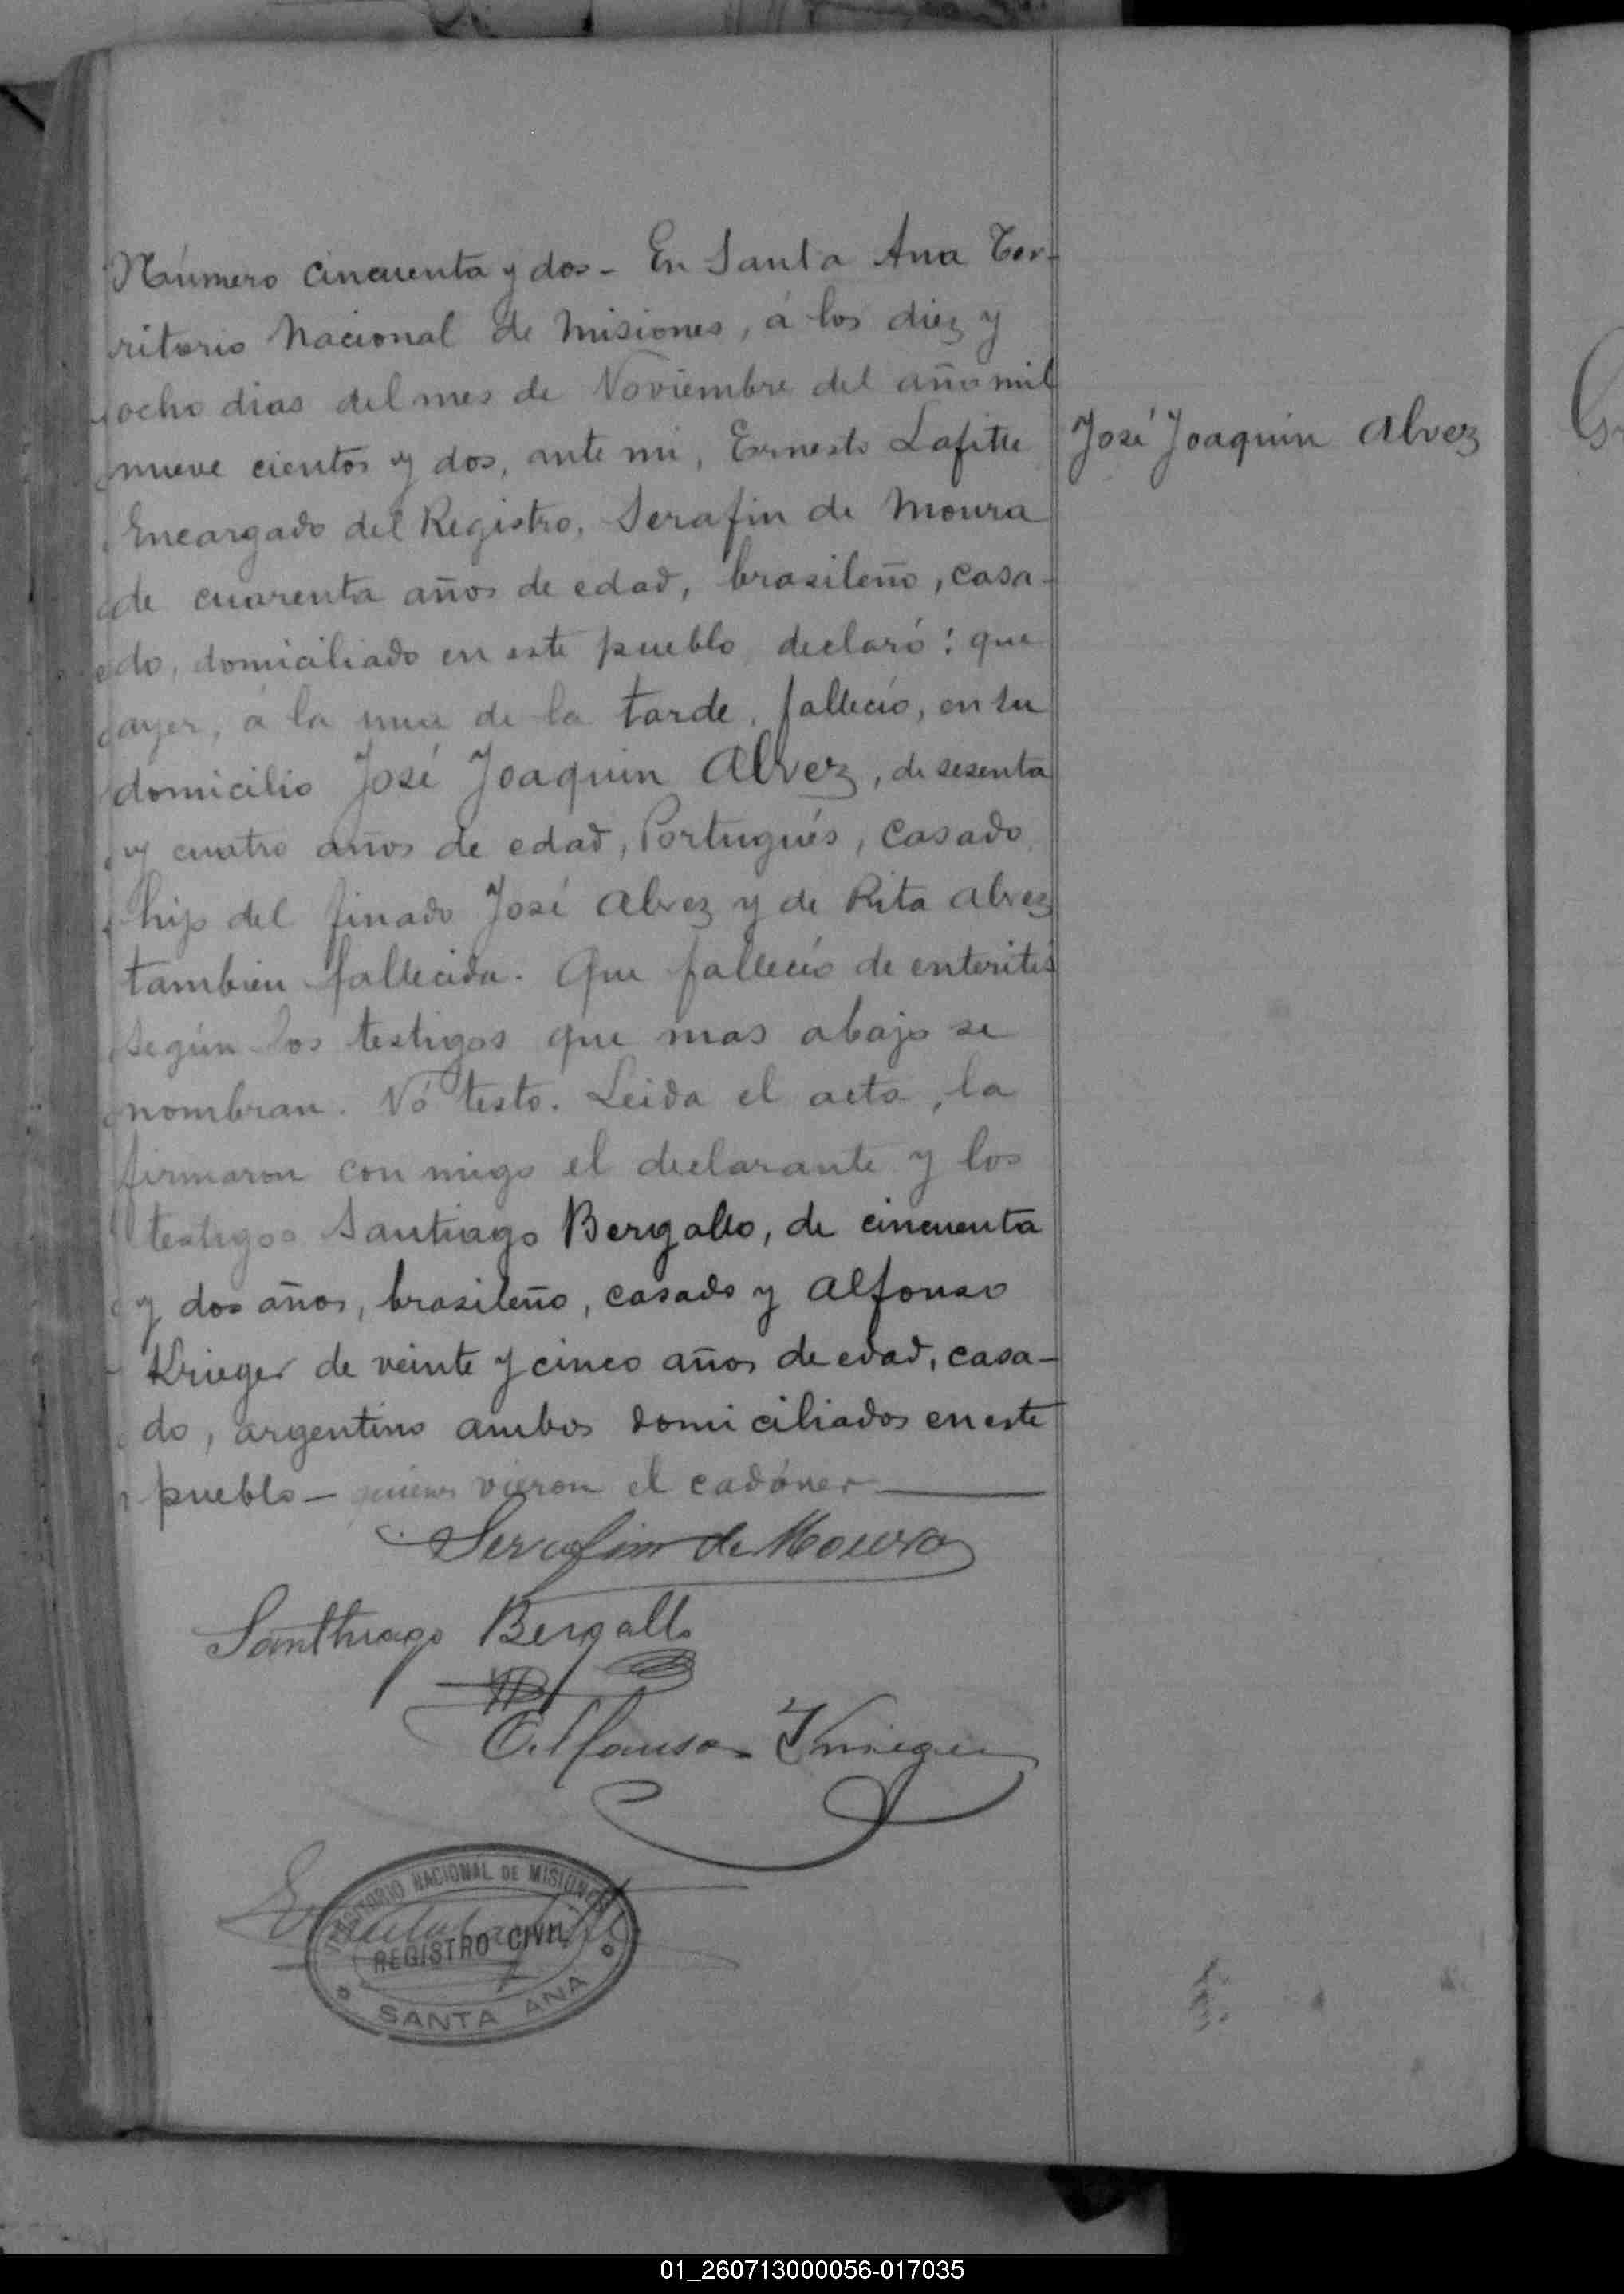 Número cincuenta y dos - En Santa Ana Ter-
ritorio Nacional de Misiones, á los diez y
ocho dias del mes de Noviembre del año mil
nueve cientos y dos, ante mi, Ernesto Lafitte
Encargado del Registro, Serafin de Moura
de cuarenta años de edad, brasileño, casa-
do, domiciliado en este pueblo declaró: que
ayer, á la una de la tarde, falleció, en su
domicilio José Joaquin Alvez, de sesenta
y cuatro años de edad, Portugués, casado,
hijo del finado José Alvez y de Rita Alvez
tambien fallecida. Que falleció de enteritis
según los testigos que mas abajo se
nombran. Nó testó. Leida el acta, la
firmaron con migo el declarante y los
testigos Santiago Bergallo, de cincuenta
y dos años, brasileño, casado y Alfonso
Krieger de veinte y cinco años de edad, casa-
do, argentino ambos domiciliados en este
pueblo - quienes vieron el cadáver
José Joaquin Alvez
Serafim de Moura
Santhiago Bergallo
Alfonso Krieger
TERRITORIO NACIONAL DE MISIONES
REGISTRO CIVIL
SANTA ANA
01_260713000056-017035